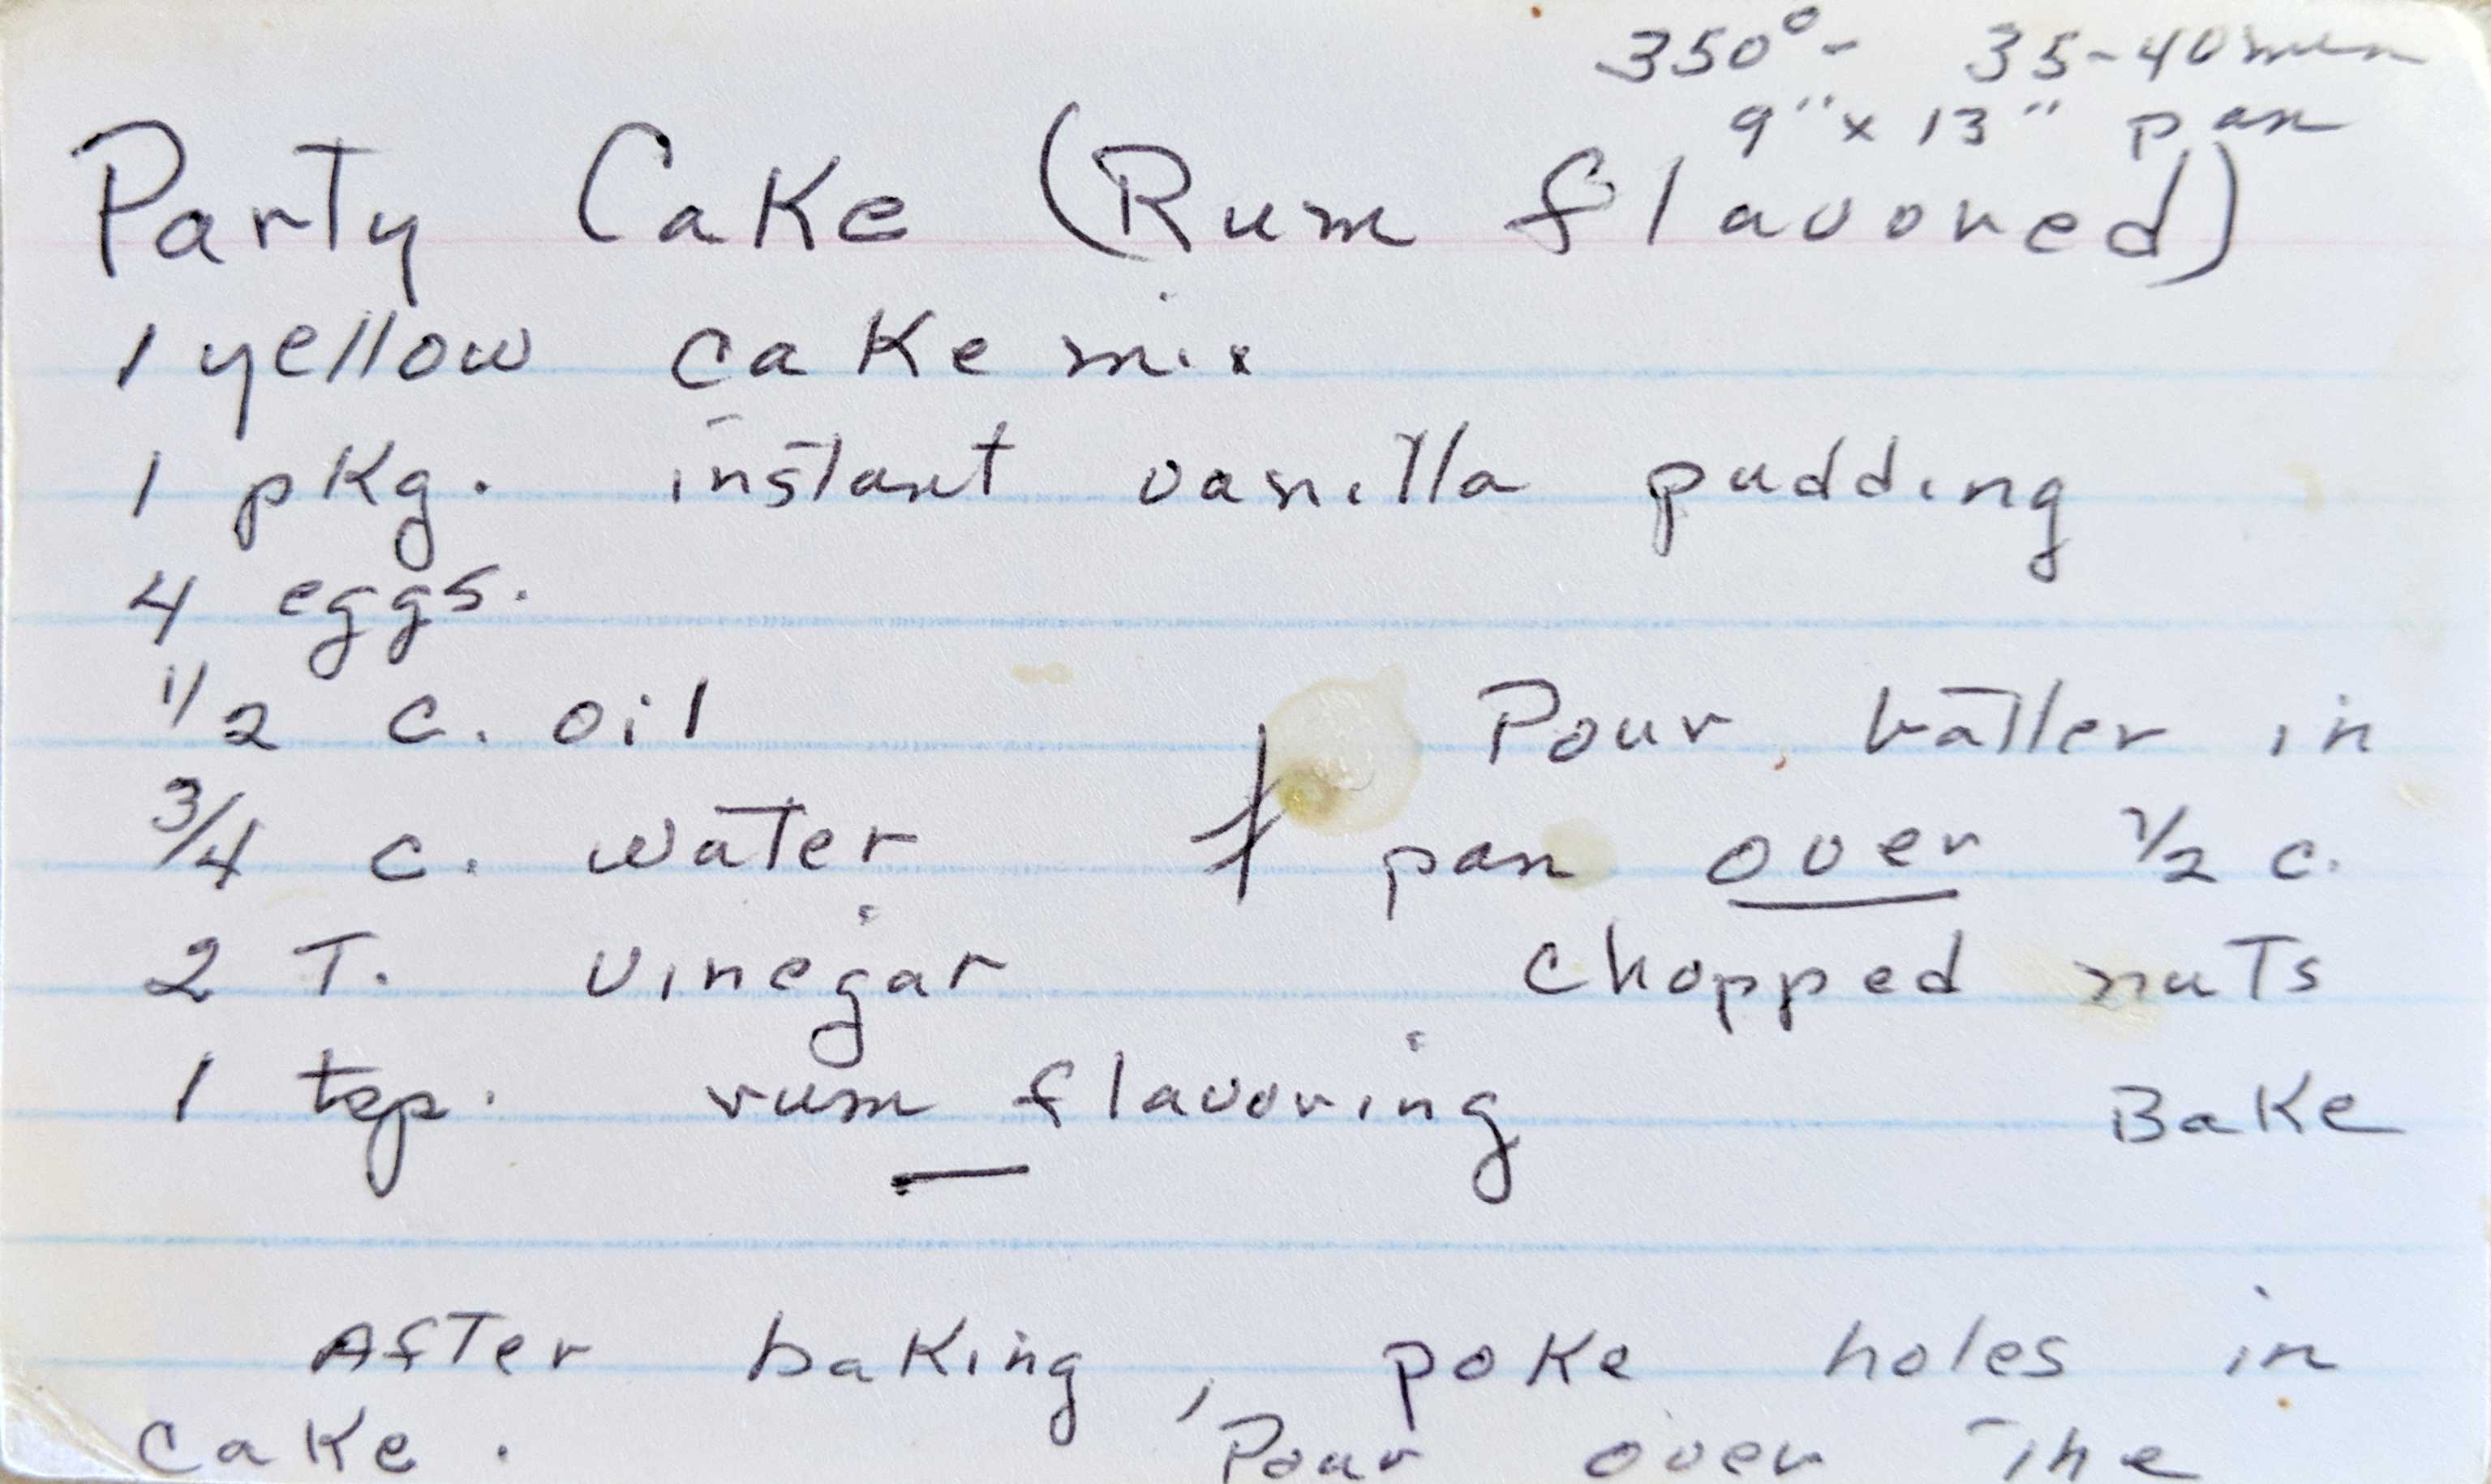 350° - 35-40 min
9" x 13" pan
Party Cake (Rum flavored)
1 yellow cake mix
1 pkg. instant vanilla pudding
4 eggs.
1/2 c. oil
3/4 c. water
2 T. vinegar
1 tsp. rum flavoring
Pour batter in
pan over 1/2 c.
chopped nuts
Bake
After baking, poke holes in
cake. Pour over the